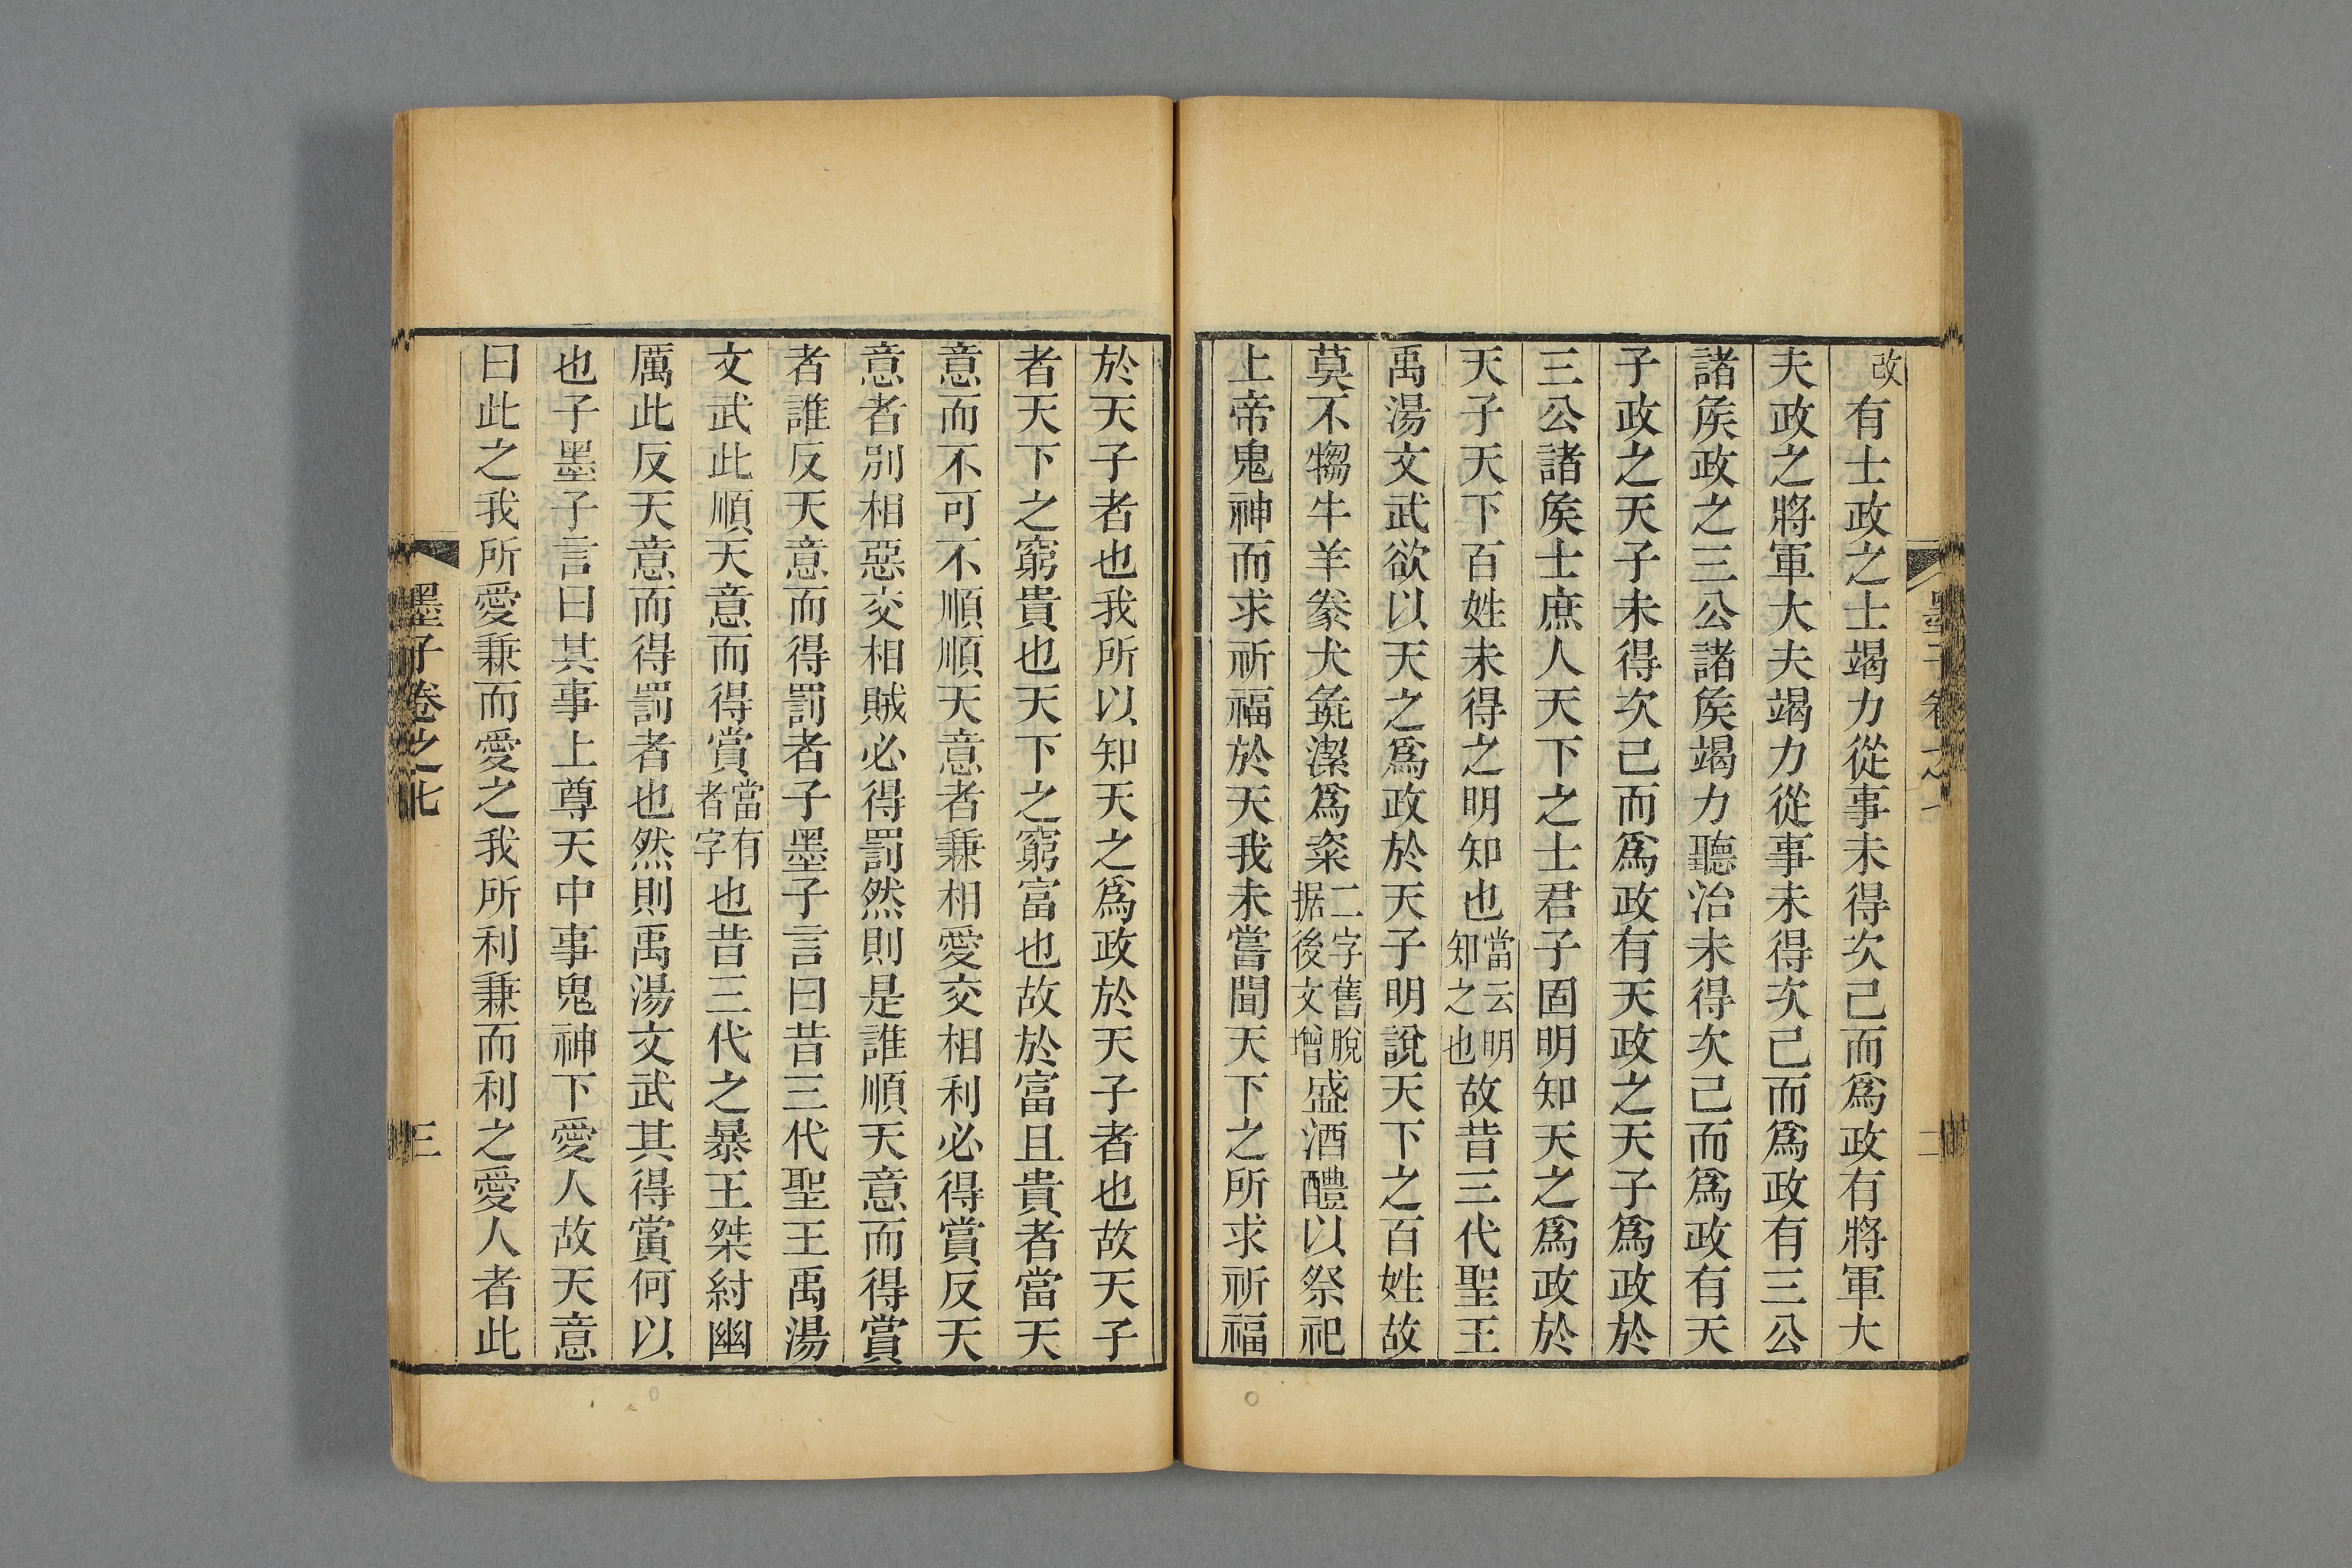 改有士政之士竭力從事未得次己而爲政有將軍大
夫政之將軍大夫竭力從事未得次己而爲政有三公
諸矦政之三公諸矦竭力聽治未得次己而爲政有天
子政之天子未得次己而爲政有天政之天子爲政於
三公諸矦士庶人天下之士君子固明知天之爲政於
天子天下百姓未得之明知也當云明知之也故昔三代聖王
禹湯文武欲以天之爲政於天子明說天下之百姓故
莫不犓牛羊豢犬彘潔爲粢二字舊脫据後文增盛酒醴以祭祀
上帝鬼神而求祈福於天我未嘗聞天下之所求祈福
於天子者也我所以知天之爲政於天子者也故天子
者天下之窮貴也天下之窮富也故於富且貴者當天
意而不可不順順天意者兼相愛交相利必得賞反天
意者別相惡交相賊必得罰然則是誰順天意而得賞
者誰反天意而得罰者子墨子言曰昔三代聖王禹湯
文武此順天意而得賞當有者字也昔三代之暴王桀紂幽
厲此反天意而得罰者也然則禹湯文武其得賞何以
也子墨子言曰其事上尊天中事鬼神下愛人故天意
曰此之我所愛兼而愛之我所利兼而利之愛人者此
墨子卷之七
三